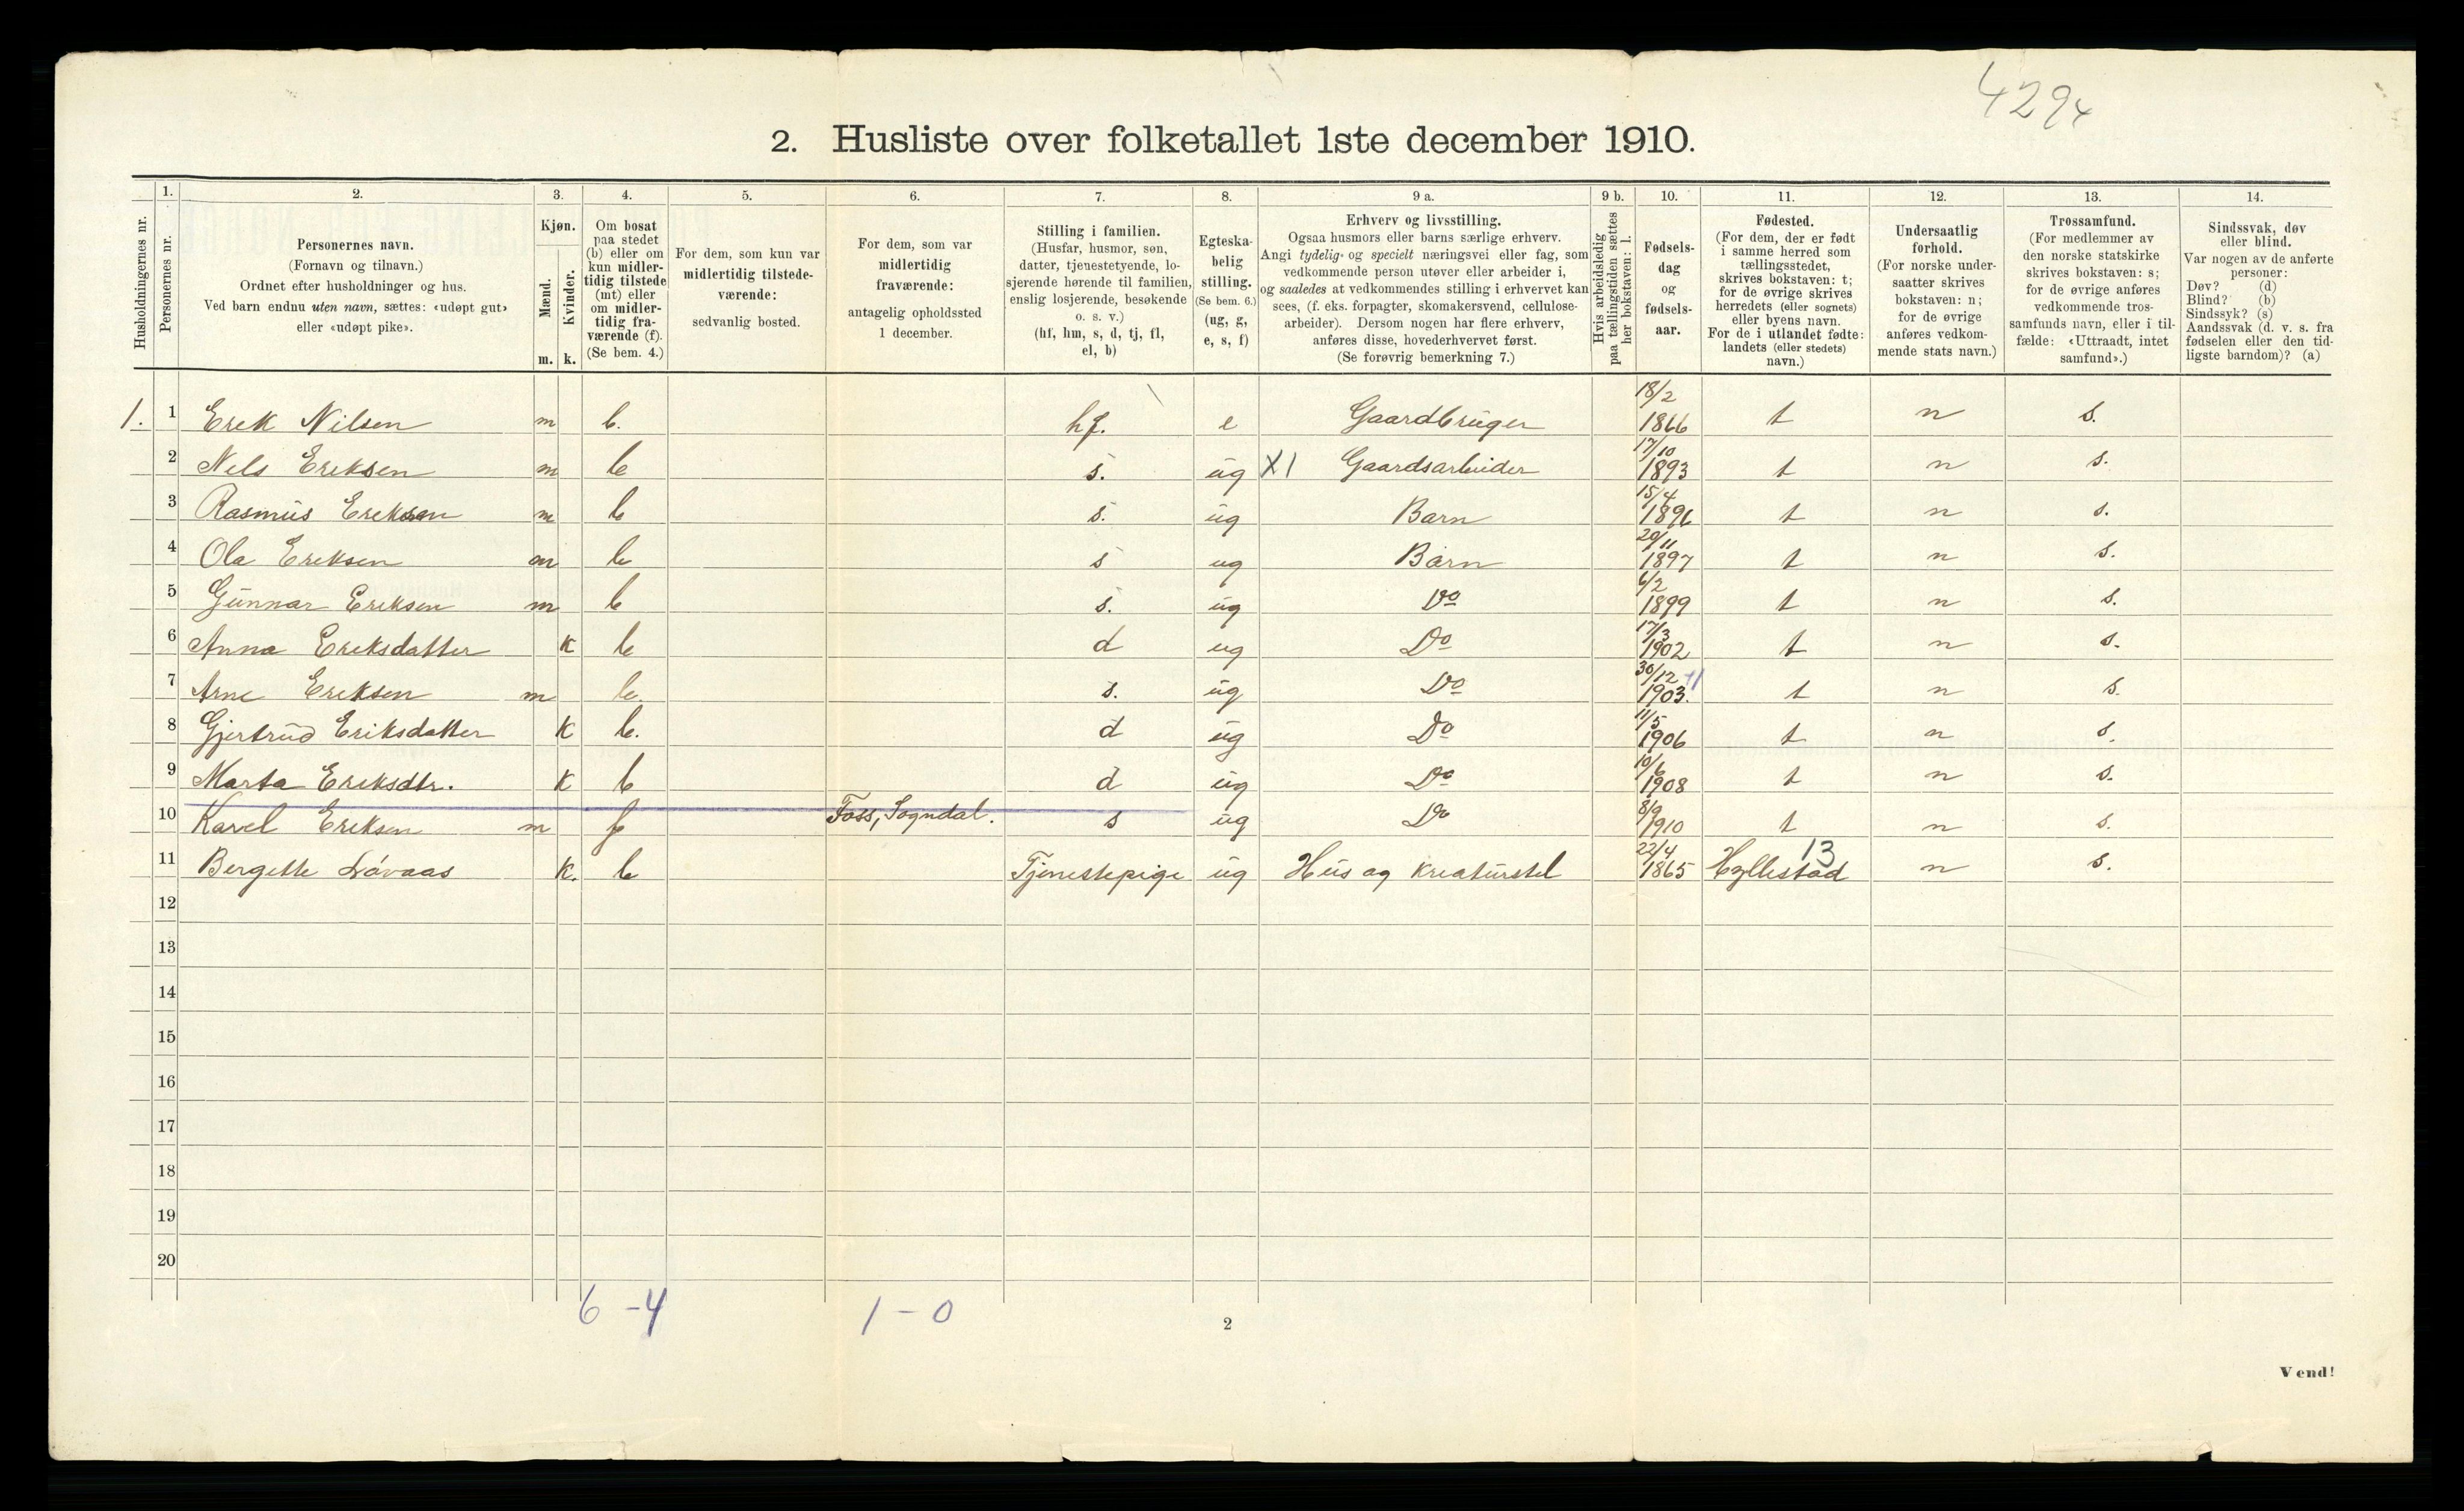 4294
2. Husliste over folketallet 1ste december 1910.
Husholdningernes nr.
1.
Personernes nr.
2.
Personernes navn.
(Fornavn og tilnavn.)
Ordnet efter husholdninger og hus.
Ved barn endnu uten navn, sættes: «udøpt gut»
eller «udøpt pike».
3.
Kjøn.
Mænd.
Kvinder.
m. k.
4.
Om bosat
paa stedet
(b) eller om
kun midler-
tidig tilstede
(mt) eller
om midler-
tidig fra-
værende (f).
(Se bem. 4.)
5.
For dem, som kun var
midlertidig tilstede-
værende:
sedvanlig bosted.
6.
For dem, som var
midlertidig
fraværende:
antagelig opholdssted
1 december.
7.
Stilling i familien.
(Husfar, husmor, søn,
datter, tjenestetyende, lo-
sjerende hørende til familien,
enslig losjerende, besøkende
o. s. v.)
(hf, hm, s, d, tj, fl,
el, b)
8.
Egteska-
belig
stilling.
(Se bem. 6.)
(ug, g,
e, s, f)
9 a.
Erhverv og livsstilling.
Ogsaa husmors eller barns særlige erhverv.
Angi tydelig- og specielt næringsvei eller fag, som
vedkommende person utøver eller arbeider i,
og saaledes at vedkommendes stilling i erhvervet kan
sees, (f. eks. forpagter, skomakersvend, cellulose-
arbeider). Dersom nogen har flere erhverv,
anføres disse, hovederhvervet først.
(Se forøvrig bemerkning 7.)
9 b.
Hvis arbeidsledig
paa tællingstiden sættes
her bokstaven: l.
10.
Fødsels-
dag
og
fødsels-
aar.
11.
Fødested.
(For dem, der er født
i samme herred som
tællingsstedet,
skrives bokstaven: t;
for de øvrige skrives
herredets (eller sognets)
eller byens navn.
For de i utlandet fødte:
landets (eller stedets)
navn.)
12.
Undersaatlig
forhold.
(For norske under-
saatter skrives
bokstaven: n;
for de øvrige
anføres vedkom-
mende stats navn.)
13.
Trossamfund.
(For medlemmer av
den norske statskirke
skrives bokstaven: s;
for de øvrige anføres
vedkommende tros-
samfunds navn, eller i til-
fælde: «Uttraadt, intet
samfund».)
14.
Sindssvak, døv
eller blind.
Var nogen av de anførte
personer:
Døv? (d)
Blind? (b)
Sindssyk? (s)
Aandssvak (d. v. s. fra
fødselen eller den tid-
ligste barndom)? (a)
1. 1 Erek Nilsen m b. hf. e Gaardbruger 18/2 1866 t n s.
2 Nels Ereksen m b s. ug X1 Gaardsarbeider 17/10 1893 t n s.
3 Rasmus Ereksen m b s. ug Barn 15/4 1896 t n s.
4 Ola Ereksen m b s ug Barn 20/11 1897 t n s.
5 Gunnar Ereksen m b s. ug Do 6/2 1899 t n s.
6 Anna Ereksdatter k b d ug Do 17/3 1902 t n s.
7 Arne Ereksen m b. s. ug Do 30/12 1903. t n s.
8 Gjertrud Eriksdatter k b. d ug Do 11/5 1906 t n s.
9 Marta Ereksdtr. k b d ug Do 10/6 1908 t n s.
10 Karel Ereksen m f Foss, Sogndal. s ug Do 8/9 1910 t n s.
11 Bergette Løvaas k. b Tjenestepige ug Hus og kreaturstel 22/4 1865 Hyllestad 13 n s.
12
13
14
15
16
17
18
19
20
6 - 4 1 - 0
2
Vend!